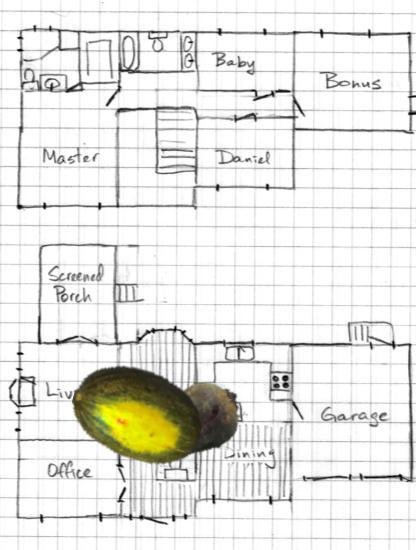 Baby
Bonus
Master
Daniel
Screened
Porch
Garage
Office
Dining